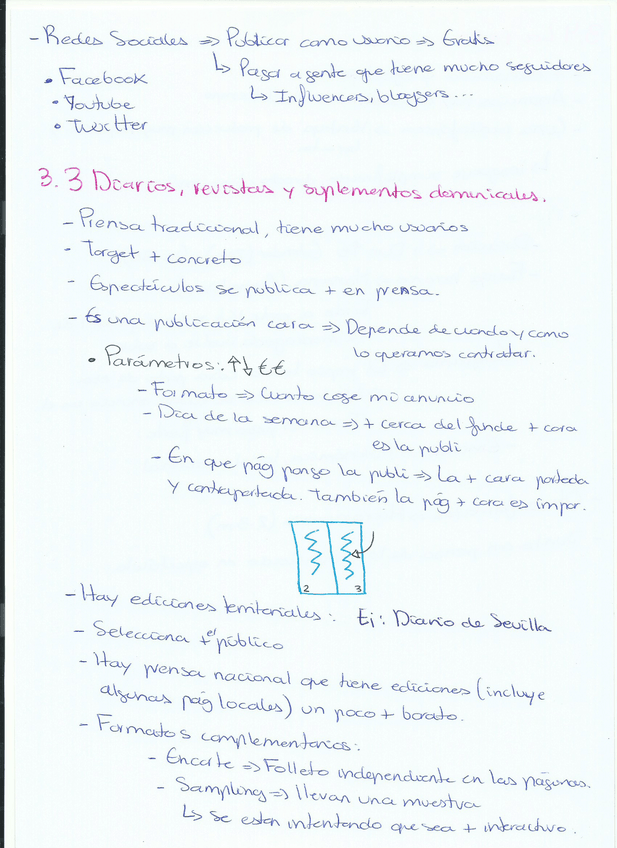 - Redes Sociales => Publicar como usuario => Gratis
↳ Pagar a gente que tiene mucho seguidores
• Facebook
↳ Influencers, bloggers...
• Youtube
• Twitter
3.3 Diarios, revistas y suplementos dominicales.
- Prensa tradicional, tiene mucho usuarios
- Target + concreto
- Espectáculos se publica + en prensa.
- Es una publicación cara => Depende de cuando y como
lo queramos contratar.
• Parámetros: ↑↓ € €
- Formato => Cuanto coge mi anuncio
- Día de la semana => + cerca del finde + cara
es la publi
- En que pág pongo la publi => La + cara portada
y contraportada. También la pág + cara es impar.
2 3
- Hay ediciones territoriales: Ej: Diario de Sevilla
- Selecciona + el público
- Hay prensa nacional que tiene ediciones (incluye
algunas pág locales) un poco + barato.
- Formatos complementarios:
- Encarte => Folleto independiente en las páginas.
- Sampling => llevan una muestra
↳ se estan intentando que sea + interactivo.